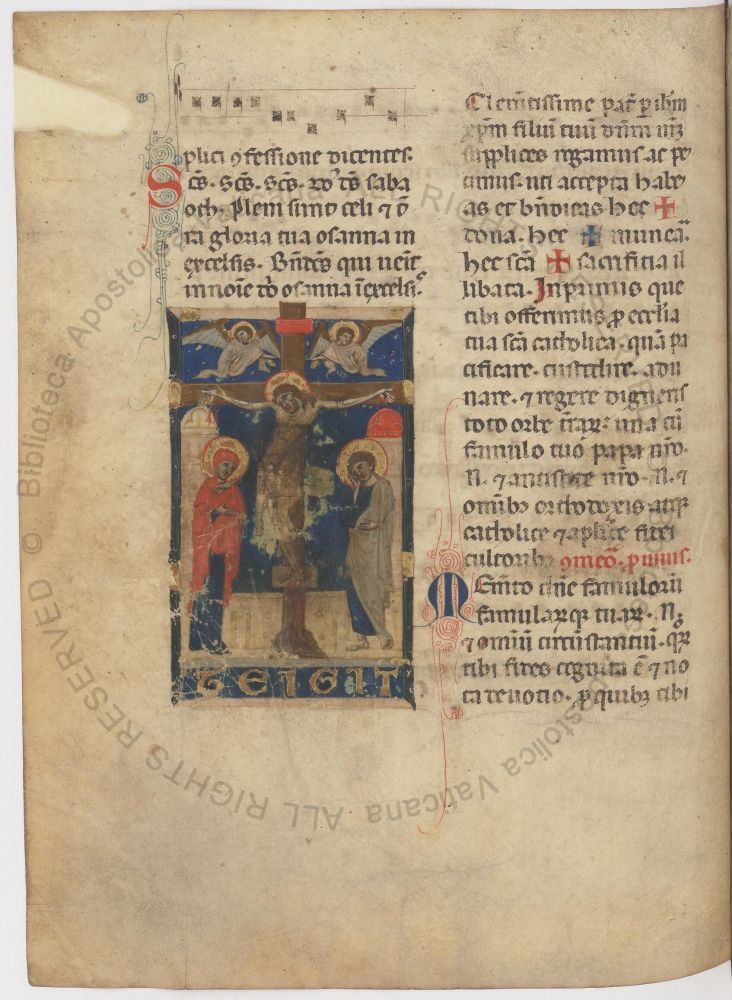 plici ꝯfessione dicentes.
Sc̄s. Sc̄s. Sc̄s. dn̄s saba
oth. Pleni sunt celi ⁊
ra gloria tua osanna in
excelsis. Bn̄dc̄s qui uenit
in noīe osanna ī excelsis.
TEIGIT
Clemētissime pat̄ ꝑ ihm
xp̄m filiū tuū dnm̄ nr̄m
supplices rogamus ac pe
timus. uti accepta habe
as et bn̄dicas hec ✠
dona. hec ✠ munera.
hec sc̄a ✠ sacrificia il
libata. Inprimis que
tibi offerimus ꝓ ecclia
tua sc̄a catholica. quā pa
cificare. custodire. adu
nare. ⁊ regere digneris
toto orbe t̄rar̄. una cū
famulo tuo papa nr̄o.
N. ⁊ antistite nr̄o. N. ⁊
omībꝫ ortodoxis atqꝫ
catholice ⁊ aplice fidei
cultoribꝫ ꝯmeō. ꝓ uiuis.
Memto dn̄e famulorū
famularꝝqꝫ tuar. N.
⁊ omīū circūstantiū. qr̄
tibi fides cognita ē ⁊ no
ta deuotio. ꝓ quibꝫ tibi
© Biblioteca Apostolica Vaticana ALL RIGHTS RESERVED